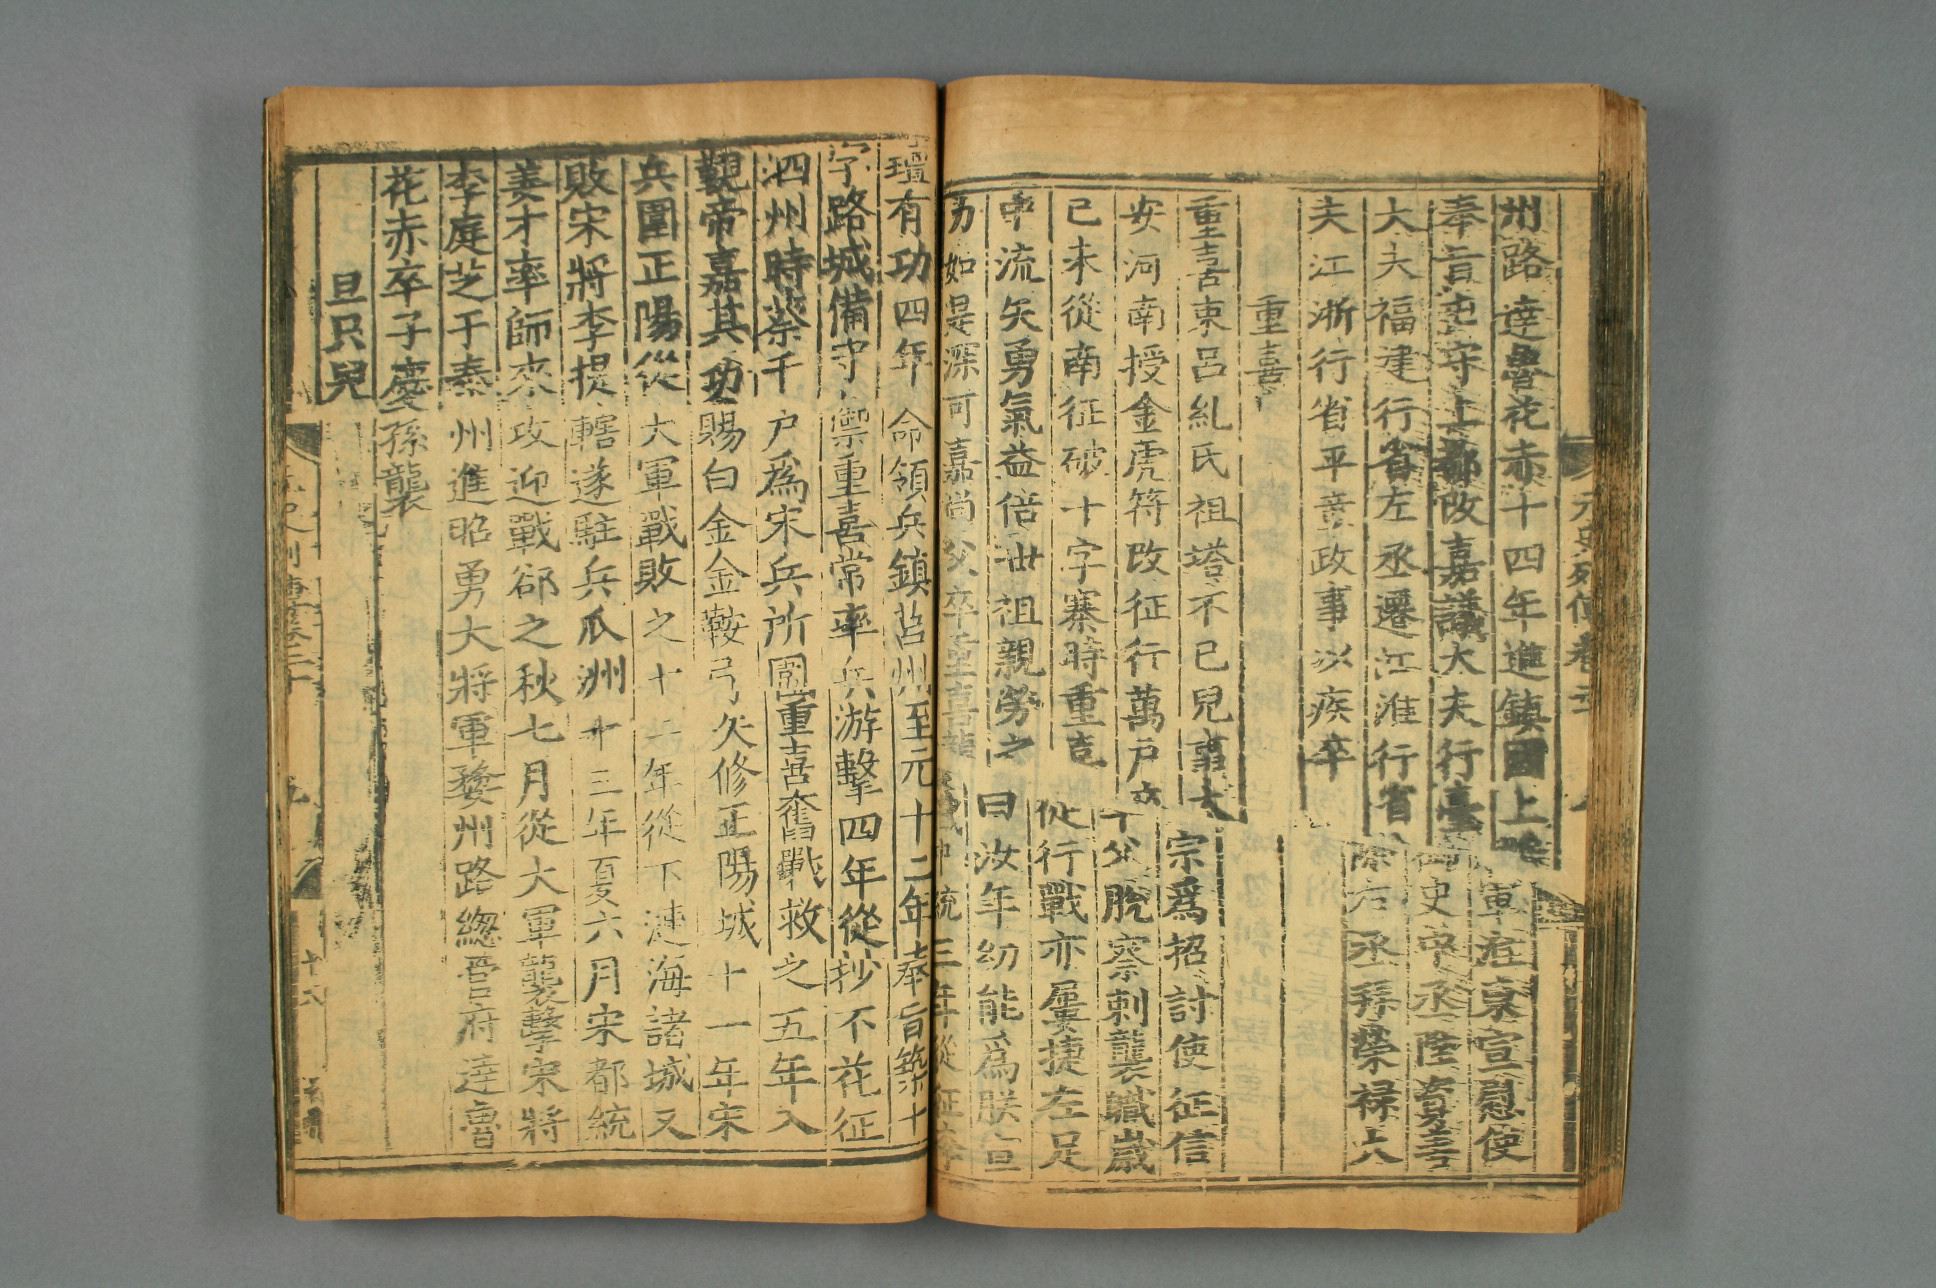 元史列傳卷二十
州路達魯花赤十四年進鎮國上 軍淮東宣慰使
奉旨屯守上都改嘉議大夫行臺御史中丞陞資善
大夫福建行省左丞遷江淮行省 右丞拜榮祿大
夫江浙行省平章政事以疾卒
重喜
重喜束呂乣氏祖塔不已兒事太宗爲招討使征信
安河南授金虎符改征行萬戶父脫察剌襲職歲
已未從南征破十字寨時重喜從行戰亦屢捷左足
中流矢勇氣益倍世祖親勞之曰汝年幼能爲朕宣
力如是深可嘉尚父卒重喜襲 中統三年從征李
璮有功四年命領兵鎮莒州至元十二年奉旨築十
字路城備守禦重喜常率兵游擊四年從抄不花征
泗州時蔡千戶爲宋兵所圍重喜奮戰救之五年入
覲帝嘉其功賜白金金鞍弓矢修正陽城十一年宋
兵圍正陽從大軍戰敗之十 年從下漣海諸城又
敗宋將李提轄遂駐兵瓜洲十三年夏六月宋都統
姜才率師來攻迎戰郤之秋七月從大軍襲擊宋將
李庭芝于泰州進昭勇大將軍婺州路緫管府達魯
花赤卒子慶孫襲
旦只兒
元史列傳卷二十
十六